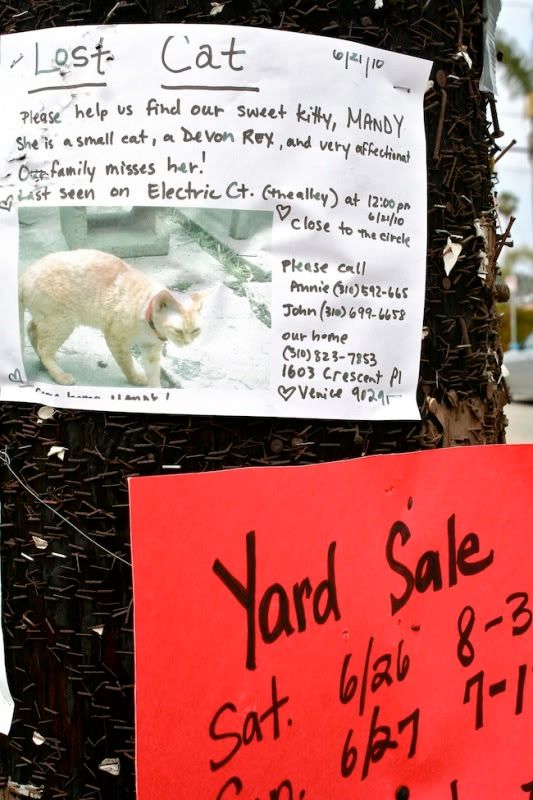 Lost Cat 6/21/10
Please help us find our sweet kitty, MANDY
She is a small cat, a DEVON REX, and very affectionat
Our family misses her!
Last seen on Electric Ct. (the alley) at 12:00 pm
6/21/10
close to the circle
Please call
Annie (310) 592-665
John (310) 699-6658
our home
(310) 823-7853
1603 Crescent Pl
Venice 90291
Yard Sale
Sat. 6/26 8-3
6/27 7-1